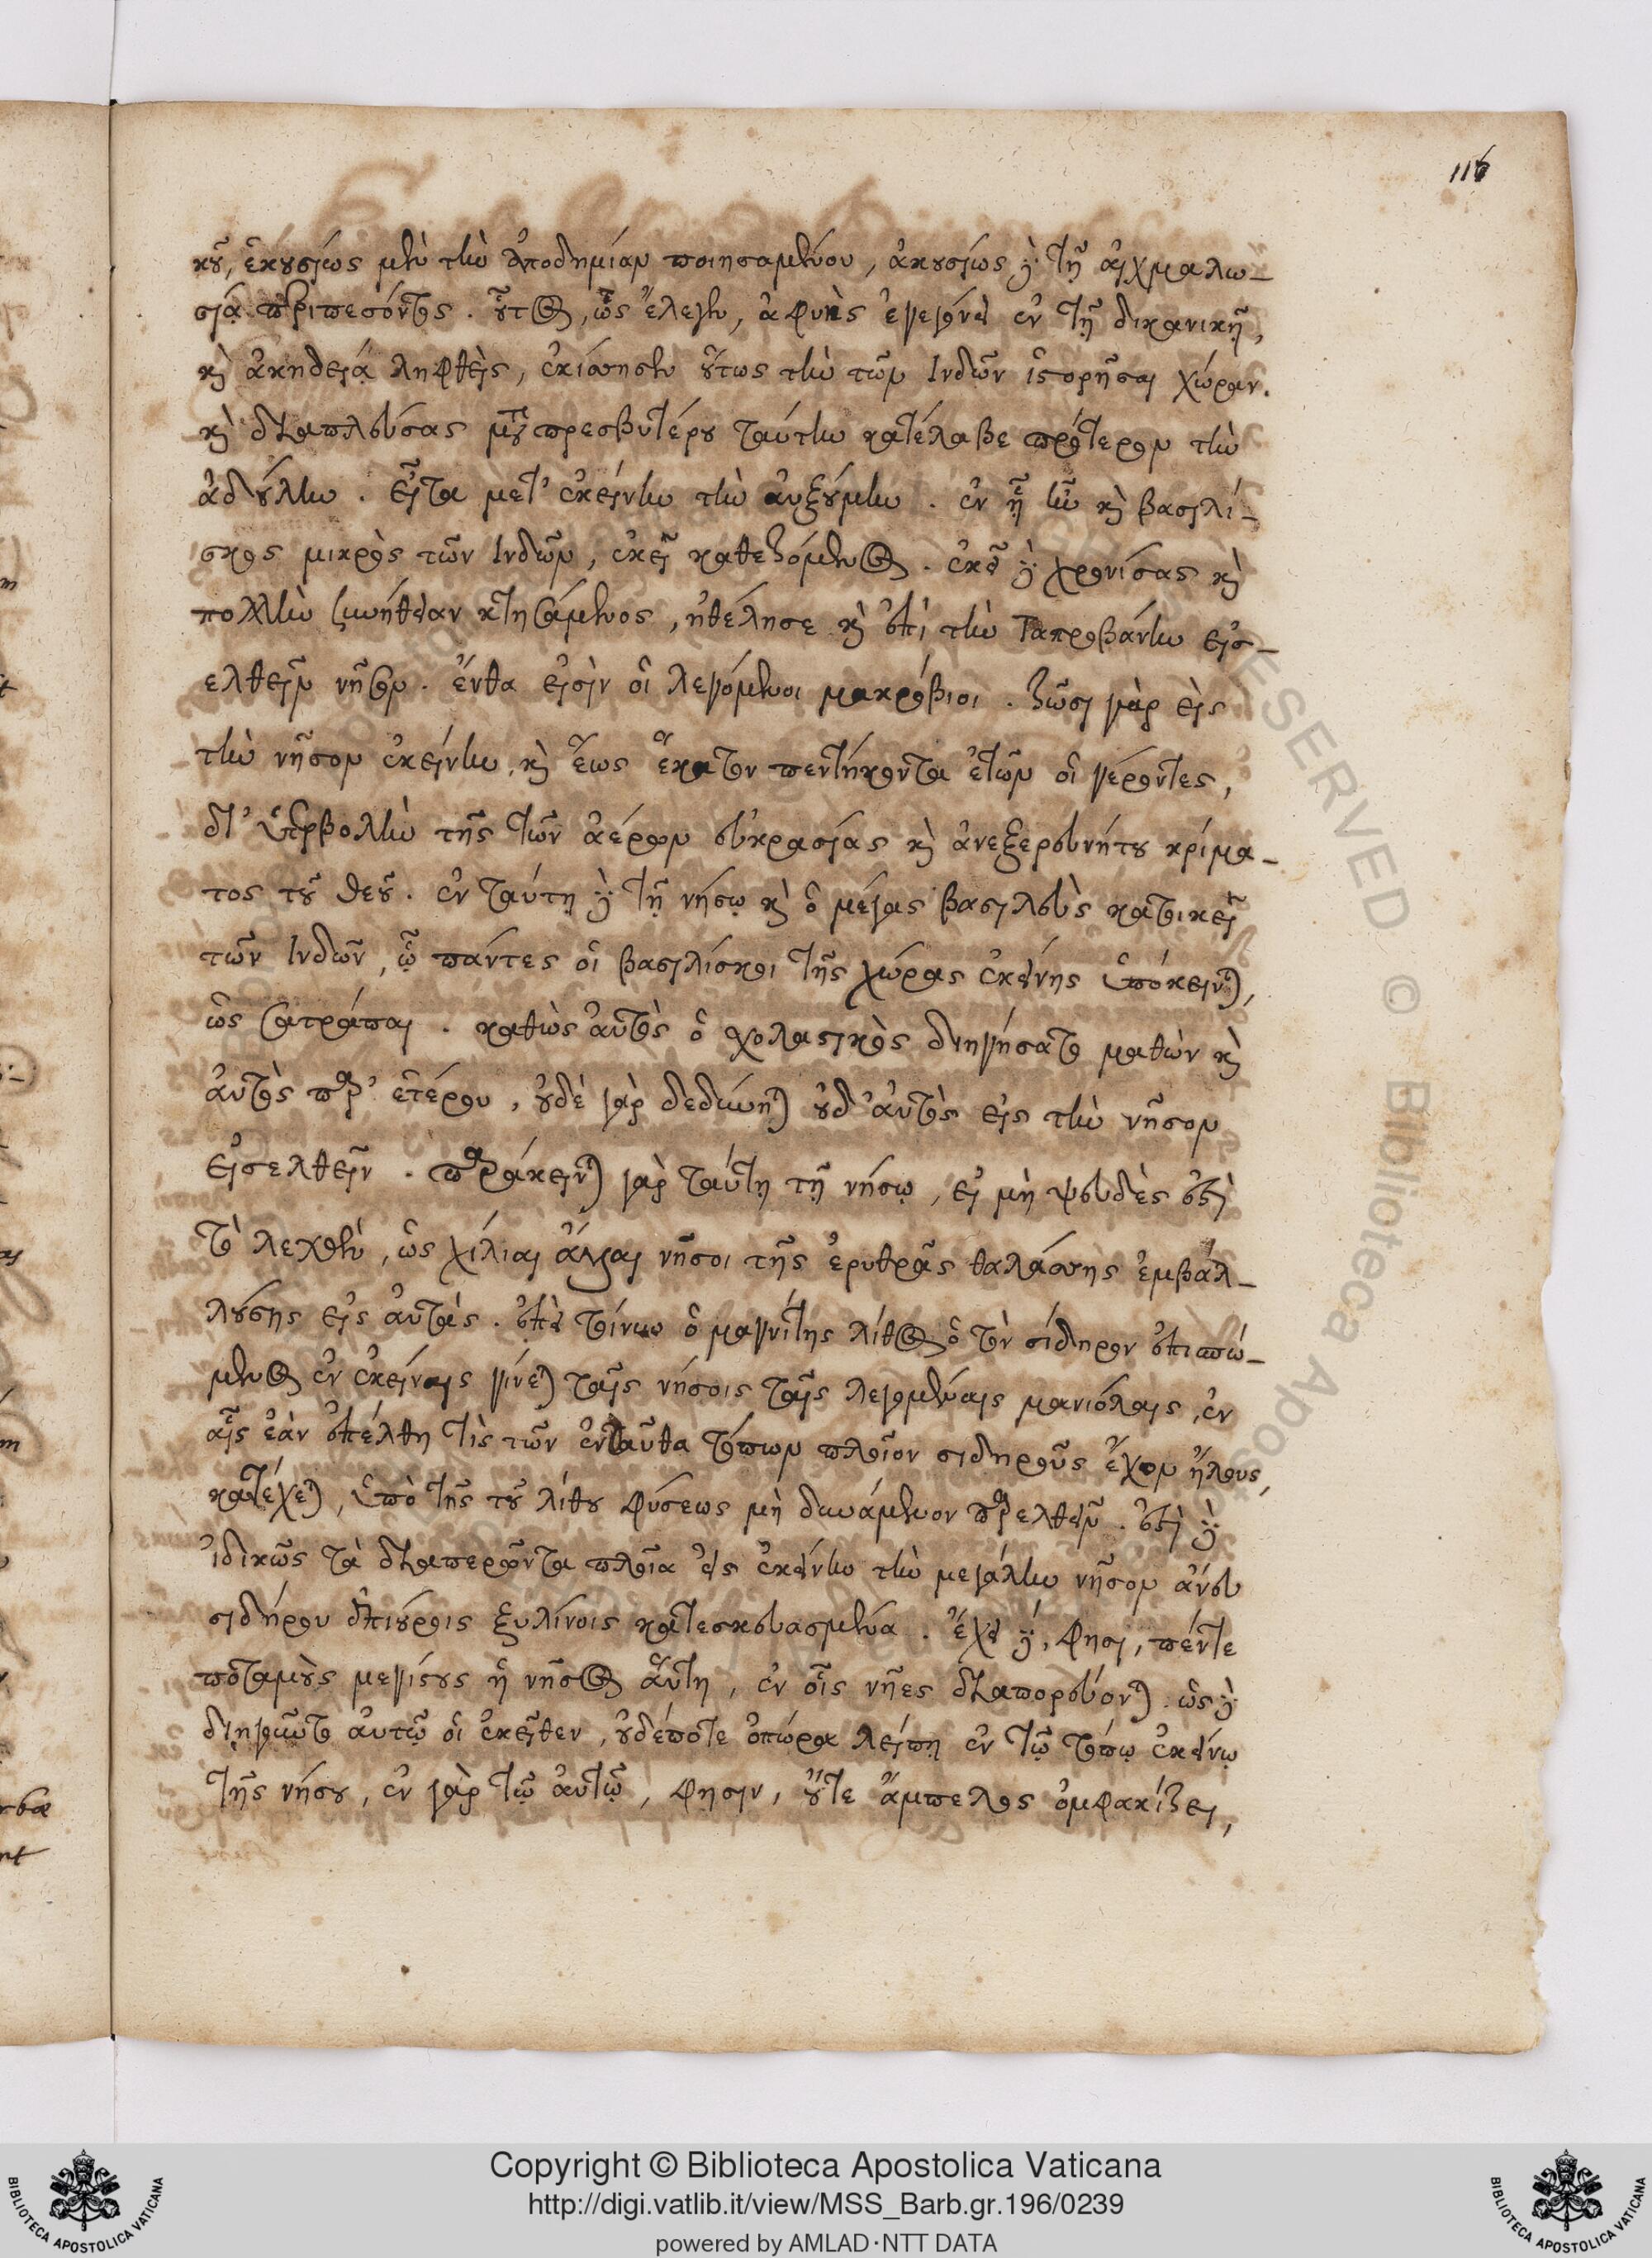 116
κοῦ, ἑκουσίως μὲν τὴν ἀποδημίαν ποιησαμένου, ἀκουσίως δὲ τῇ αἰχμαλω-
σίᾳ περιπεσόντος. οὗτος, ὡς ἔλεγεν, ἀφυὴς ἐγεγόνει ἐν τῇ δικανικῇ,
καὶ ἀκηδείᾳ ληφθεὶς, ἐκίνησεν οὕτως τὴν τῶν Ἰνδῶν ἱστορῆσαι χώραν.
καὶ διαπλεύσας μετὰ πρεσβυτέρου ταύτην κατέλαβε πρότερον τὴν
ἀδούλην. εἶτα μετ' ἐκείνην τὴν ἀυξούμην. ἐν ᾗ ἦν καὶ βασιλί-
σκος μικρὸς τῶν Ἰνδῶν, ἐκεῖ καθεζόμενος. ἐκεῖ δὲ χρονίσας καὶ
πολλὴν συνήθειαν κτησάμενος, ἠθέλησε καὶ ἐπὶ τὴν Ταπροβάνην εἰσ-
ελθεῖν νῆσον. ἔνθα εἰσὶν οἱ λεγόμενοι μακρόβιοι. ζῶσι γὰρ εἰς
τὴν νῆσον ἐκείνην, καὶ ἕως ἑκατὸν πεντήκοντα ἐτῶν οἱ γέροντες,
δι' ὑπερβολὴν τῆς τῶν ἀέρων εὐκρασίας καὶ ἀνεξερευνήτου κρίμα-
τος τοῦ θεοῦ. ἐν ταύτῃ δὲ τῇ νήσῳ καὶ ὁ μέγας βασιλεὺς κατοικεῖ
τῶν Ἰνδῶν, ᾧ πάντες οἱ βασιλίσκοι τῆς χώρας ἐκείνης ὑπόκεινται,
ὡς σατράπαι. καθὼς αὐτὸς ὁ σχολαστικὸς διηγήσατο μαθὼν καὶ
αὐτὸς παρ' ἑτέρου, οὐδὲ γὰρ δεδύνηται οὐδ' αὐτὸς εἰς τὴν νῆσον
εἰσελθεῖν. παράκεινται γὰρ ταύτῃ τῇ νήσῳ, εἰ μὴ ψευδὲς ἐστὶ
τὸ λεχθὲν, ὡς χίλιαι ἄλλαι νῆσοι τῆς ἐρυθρᾶς θαλάσσης ἐμβαλ-
λούσης εἰς αὐτάς. ἐπεὶ τοίνυν ὁ μαγνίτης λίθος ὁ τὸν σίδηρον ἐπισπώ-
μενος ἐν ἐκείναις γίνεται ταῖς νήσοις ταῖς λεγομέναις μανιόλαις, ἐν
αἷς ἐὰν ἐπέλθῃ τὶς τῶν ἐνταῦθα τόπων πλοῖον σιδηροῦς ἔχον ἥλους,
κατέχεται, ὑπὸ τῆς τοῦ λίθου φύσεως μὴ δυνάμενον παρελθεῖν. ἐστὶ δὲ
ἰδικῶς τὰ διαπερῶντα πλοῖα εἰς ἐκείνην τὴν μεγάλην νῆσον ἄνευ
σιδήρου ἐπιούροις ξυλίνοις κατεσκευασμένα. ἔχει δὲ, φησι, πέντε
ποταμοὺς μεγίστους ἡ νῆσος αὕτη, ἐν οἷς νῆες διαπορεύονται. ὡς δὲ
διηγοῦντο αὐτῷ οἱ ἐκεῖθεν, οὐδέποτε ὀπώρα λείπῃ ἐν τῷ τόπῳ ἐκείνῳ
τῆς νήσου, ἐν γὰρ τῷ αὐτῷ, φησιν, οὔτε ἄμπελος ὀμφακίζει,
Copyright © Biblioteca Apostolica Vaticana
http://digi.vatlib.it/view/MSS_Barb.gr.196/0239
powered by AMLAD·NTT DATA